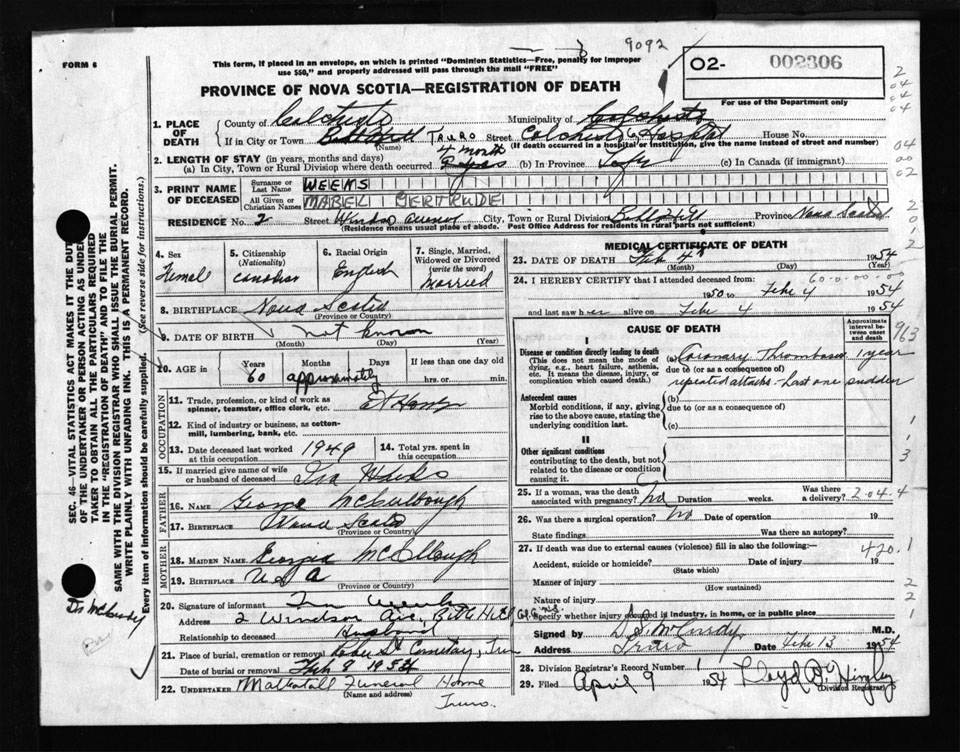 9092
FORM 6
This form, if placed in an envelope, on which is printed "Dominion Statistics—Free, penalty for improper
use $50," and properly addressed will pass through the mail "FREE"
O2- 002306
For use of the Department only
PROVINCE OF NOVA SCOTIA—REGISTRATION OF DEATH
1. PLACE OF DEATH
County of Colchester Municipality of Colchester
If in City or Town Bible Hill TRURO Street Colchester Co Hospital House No.
(Name) (If death occurred in a hospital or institution, give the name instead of street and number)
2. LENGTH OF STAY (in years, months and days)
(a) In City, Town or Rural Division where death occurred 4 month (b) In Province Life (c) In Canada (if immigrant)
3. PRINT NAME OF DECEASED
Surname or Last Name WEEKS
All Given or Christian Names MABEL GERTRUDE
RESIDENCE No. 2 Street Windsor Avenue City, Town or Rural Division Bible Hill Province Nova Scotia
(Residence means usual place of abode. Post Office Address for residents in rural parts not sufficient)
4. Sex
Femal
5. Citizenship
(Nationality)
Canadian
6. Racial Origin
English
7. Single, Married,
Widowed or Divorced
(write the word)
Married
8. BIRTHPLACE Nova Scotia
(Province or Country)
9. DATE OF BIRTH not known
(Month) (Day) (Year)
10. AGE in Years Months Days If less than one day
60 approximately hrs. or min.
11. Trade, profession, or kind of work as
spinner, teamster, office clerk, etc. At Home
12. Kind of industry or business, as cotton-
mill, lumbering, bank, etc.
OCCUPATION
13. Date deceased last worked
at this occupation 1949
14. Total yrs. spent in
this occupation
15. If married give name of wife
or husband of deceased Ira Weeks
FATHER
16. NAME George McCullough
17. BIRTHPLACE Nova Scotia
(Province or Country)
MOTHER
18. MAIDEN NAME Georgia McCullough
19. BIRTHPLACE U S A
(Province or Country)
20. Signature of informant Ira Weeks
Address 2 Windsor Ave, Bible Hill
Relationship to deceased Husband
21. Place of burial, cremation or removal Cemetary, Truro
Date of burial or removal Feb 8 1954
22. UNDERTAKER Mattatall Funeral Home
(Name and address)
Truro.
MEDICAL CERTIFICATE OF DEATH
23. DATE OF DEATH Feb 4th 1954
(Month) (Day) (Year)
24. I HEREBY CERTIFY that I attended deceased from:
1950 to Feb 4 1954
and last saw her alive on Feb 4 1954
CAUSE OF DEATH
Approximate
interval be-
tween onset
and death
I
Disease or condition directly leading to death
(This does not mean the mode of
dying, e.g., heart failure, asthenia,
etc. It means the disease, injury, or
complication which caused death.)
(a) Coronary Thrombosis 1 year
due to (or as a consequence of)
repeated attacks - last one sudden
Antecedent causes
Morbid conditions, if any, giving
rise to the above cause, stating the
underlying condition last.
(b)
due to (or as a consequence of)
(c)
II
Other significant conditions
contributing to the death, but not
related to the disease or condition
causing it.
25. If a woman, was the death
associated with pregnancy? No Duration weeks. Was there
a delivery? 204.4
26. Was there a surgical operation? No Date of operation 19
State findings Was there an autopsy?
27. If death was due to external causes (violence) fill in also the following:— 420.1
Accident, suicide or homicide? Date of injury 19
(State which)
Manner of injury
(How sustained)
Nature of injury
Specify whether injury occured in industry, in home, or in public place
Signed by McCurdy M.D.
Address Truro Date Feb 13 1954
28. Division Registrar's Record Number 1
29. Filed April 9 1954 Lloyd
(Division Registrar)
SEC. 46—VITAL STATISTICS ACT MAKES IT THE DUTY
OF THE UNDERTAKER OR PERSON ACTING AS UNDER-
TAKER TO OBTAIN ALL THE PARTICULARS REQUIRED
IN THE "REGISTRATION OF DEATH" AND TO FILE THE
SAME WITH THE DIVISION REGISTRAR WHO SHALL ISSUE THE BURIAL PERMIT.
WRITE PLAINLY WITH UNFADING INK. THIS IS A PERMANENT RECORD.
Every item of information should be carefully supplied. (See reverse side for instructions.)
Dr McCurdy